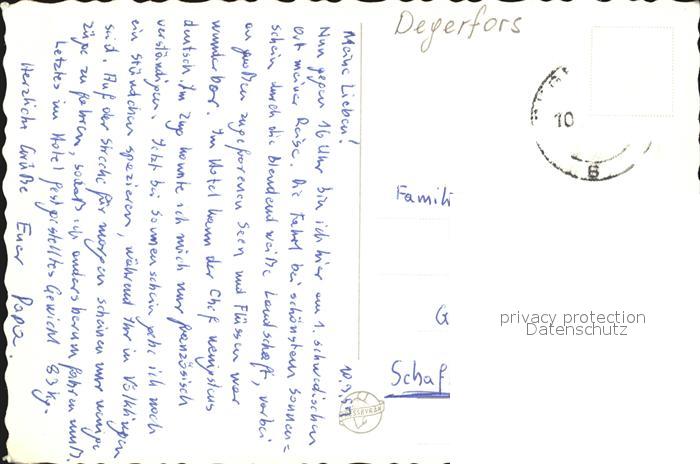 Degerfors
10
6
Famili
G
Schaf
privacy protection
Datenschutz
10.3.
Meine Lieben!
Nun gegen 16 Uhr bin ich hier am 1. schwedischen
Ort meiner Reise. Die Fahrt bei schönstem Sonnen=
schein durch die blendend weiße Landschaft, vorbei
an großen zugefrorenen Seen und Flüssen war
wunderbar. Im Hotel kann der Chef wenigstens
deutsch. Im Zug konnte ich mich nur französisch
verständigen. Jetzt bei Sonnenschein gehe ich noch
ein Stündchen spazieren, während Ihr in Völklingen
seid. Auf der Strecke für morgen scheinen nur wenige
Züge zu fahren, sodaß ich anders herum fahren muß.
Letztes im Hotel festgestelltes Gewicht 83 kg.
Herzliche Grüße Euer Papa.